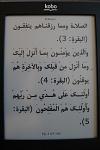 kobo
الصلاة ومما رزقناهم ينفقون
(البقرة: 3).
والذين يؤمنون بما أنزل إليك
وما أنزل من قبلك وبالآخرة هم
يوقنون (البقرة: 4).
أولئك على هدى من ربهم
وأولئك هم المفلحون (البقرة:
5).